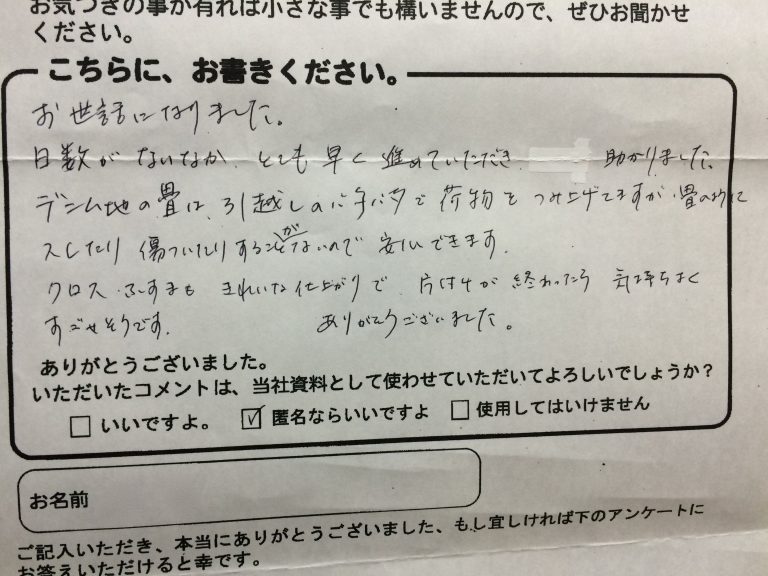 お気づきの事が有れば小さな事でも構いませんので、ぜひお聞かせ
ください。
こちらに、お書きください。
お世話になりました。
日数がないなか、とても早く進めていただき 助かりました。
デニム地の畳は、引越しのバタバタで荷物をつみ上げてますが、畳のように
スしたり 傷ついたりすることがないので 安心できます。
クロス・ふすまも きれいな仕上がりで、片付けが 終わったら 気持ちよく
すごせそうです。 ありがとうございました。
ありがとうございました。
いただいたコメントは、当社資料として使わせていただいてよろしいでしょうか？
□ いいですよ。 ☑ 匿名ならいいですよ □ 使用してはいけません
お名前
ご記入いただき、本当にありがとうございました、もし宜しければ下のアンケートに
お答えいただけると幸です。